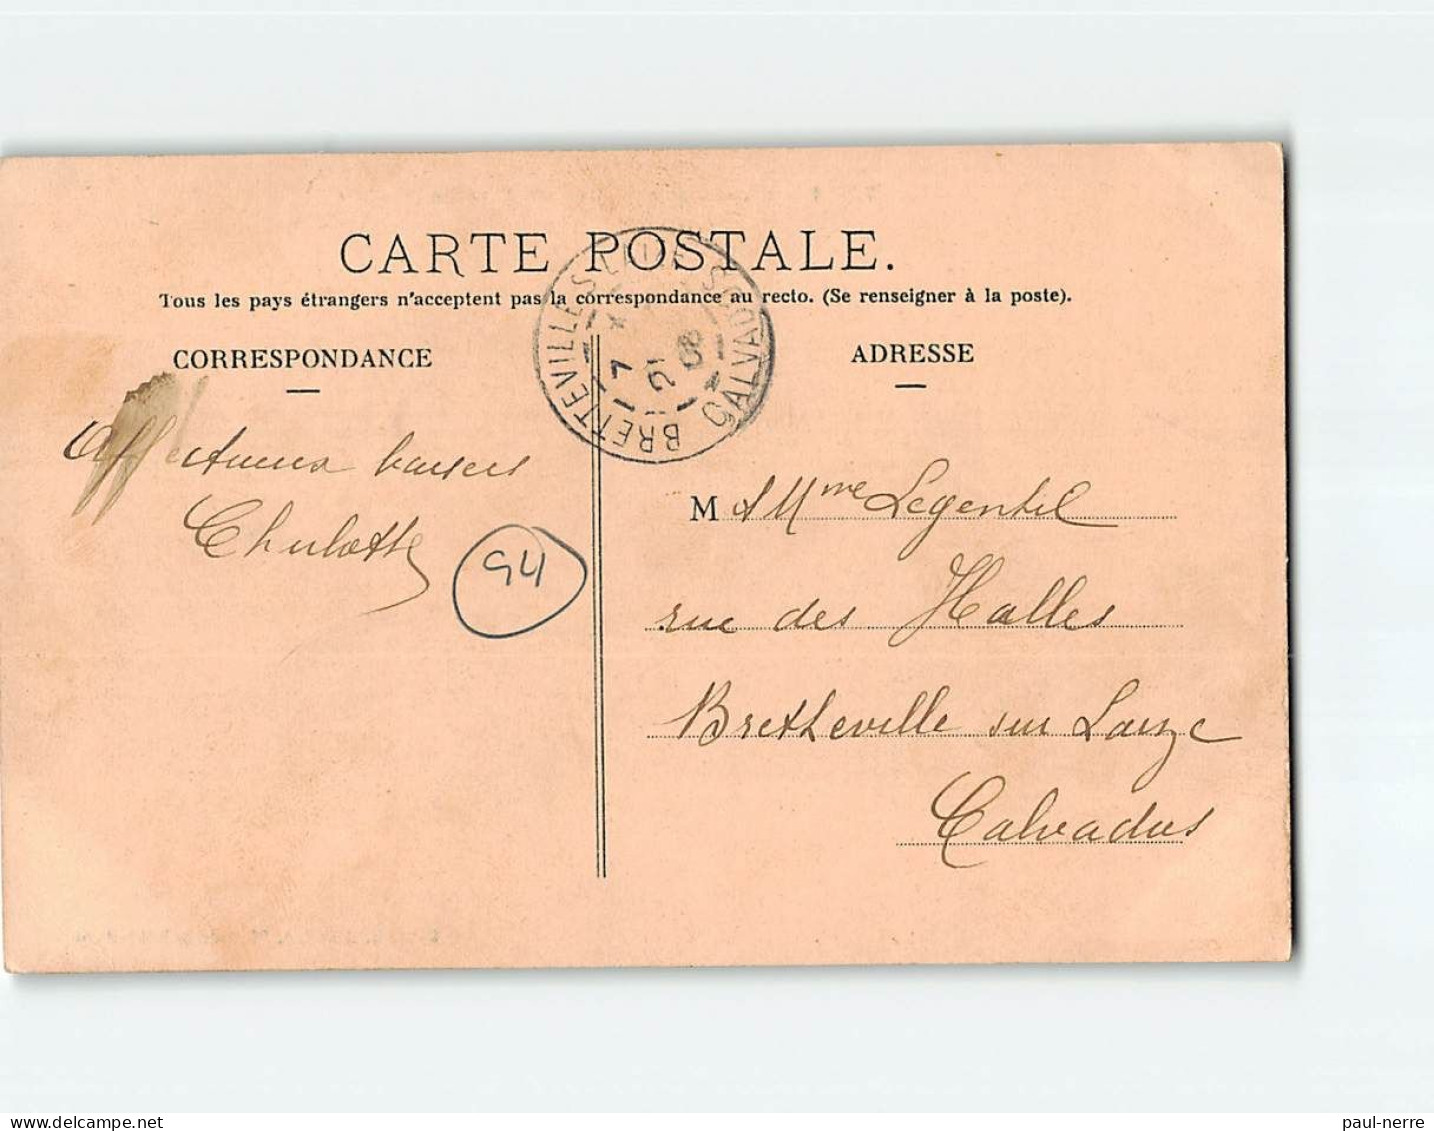 CARTE POSTALE.
Tous les pays étrangers n'acceptent pas la correspondance au recto. (Se renseigner à la poste).
CORRESPONDANCE
ADRESSE
BRETTEVILLE S LAIZE
CALVADOS
7
21
08
Affectueux baisers
Chulotte
94
M & Mme Legentil
rue des Halles
Bretheville sur Laize
Calvados
paul-nerre